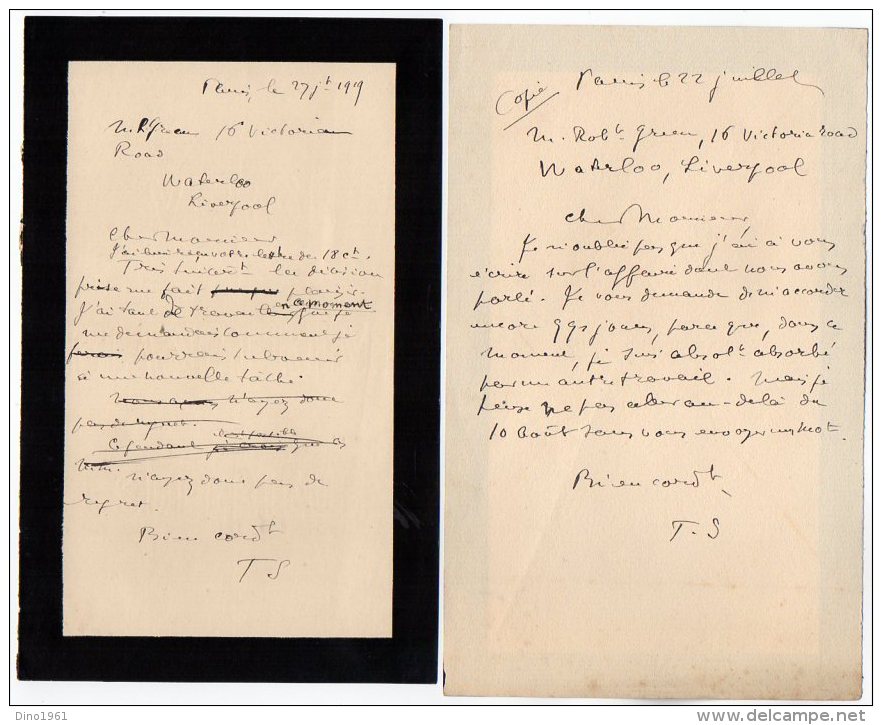 Paris, le 27 jt 1919
M. Rt Green 16 Victorian
Road
Waterloo
Liverpool
Cher Monsieur
J'ai bien reçu votre lettre du 18 ct.
Très sincert la décision
prise me fait plaisir.
J'ai tant de travail en ce moment que je
me demandais comment je
ferais pourrais subvenir
à une nouvelle tâche.
N'ayez donc
pas de regret.
Cependant que les
N'ayez donc pas de
regret.
Bien cordt
T S
Copie
Paris le 22 juillet
M. Robt Green, 16 Victoria road
Waterloo, Liverpool
Cher Monsieur
Je n'oublie pas que j'ai à vous
écrire sur l'affaire dont nous avons
parlé. Je vous demande de m'accorder
encore qqs jours, parce que, dans ce
moment, je suis absolt absorbé
par un autre travail. Mais je
pense ne pas aller au-delà du
10 Août sans vous envoyer un mot.
Bien cordt
T. S
Dino1961
www.delcampe.net